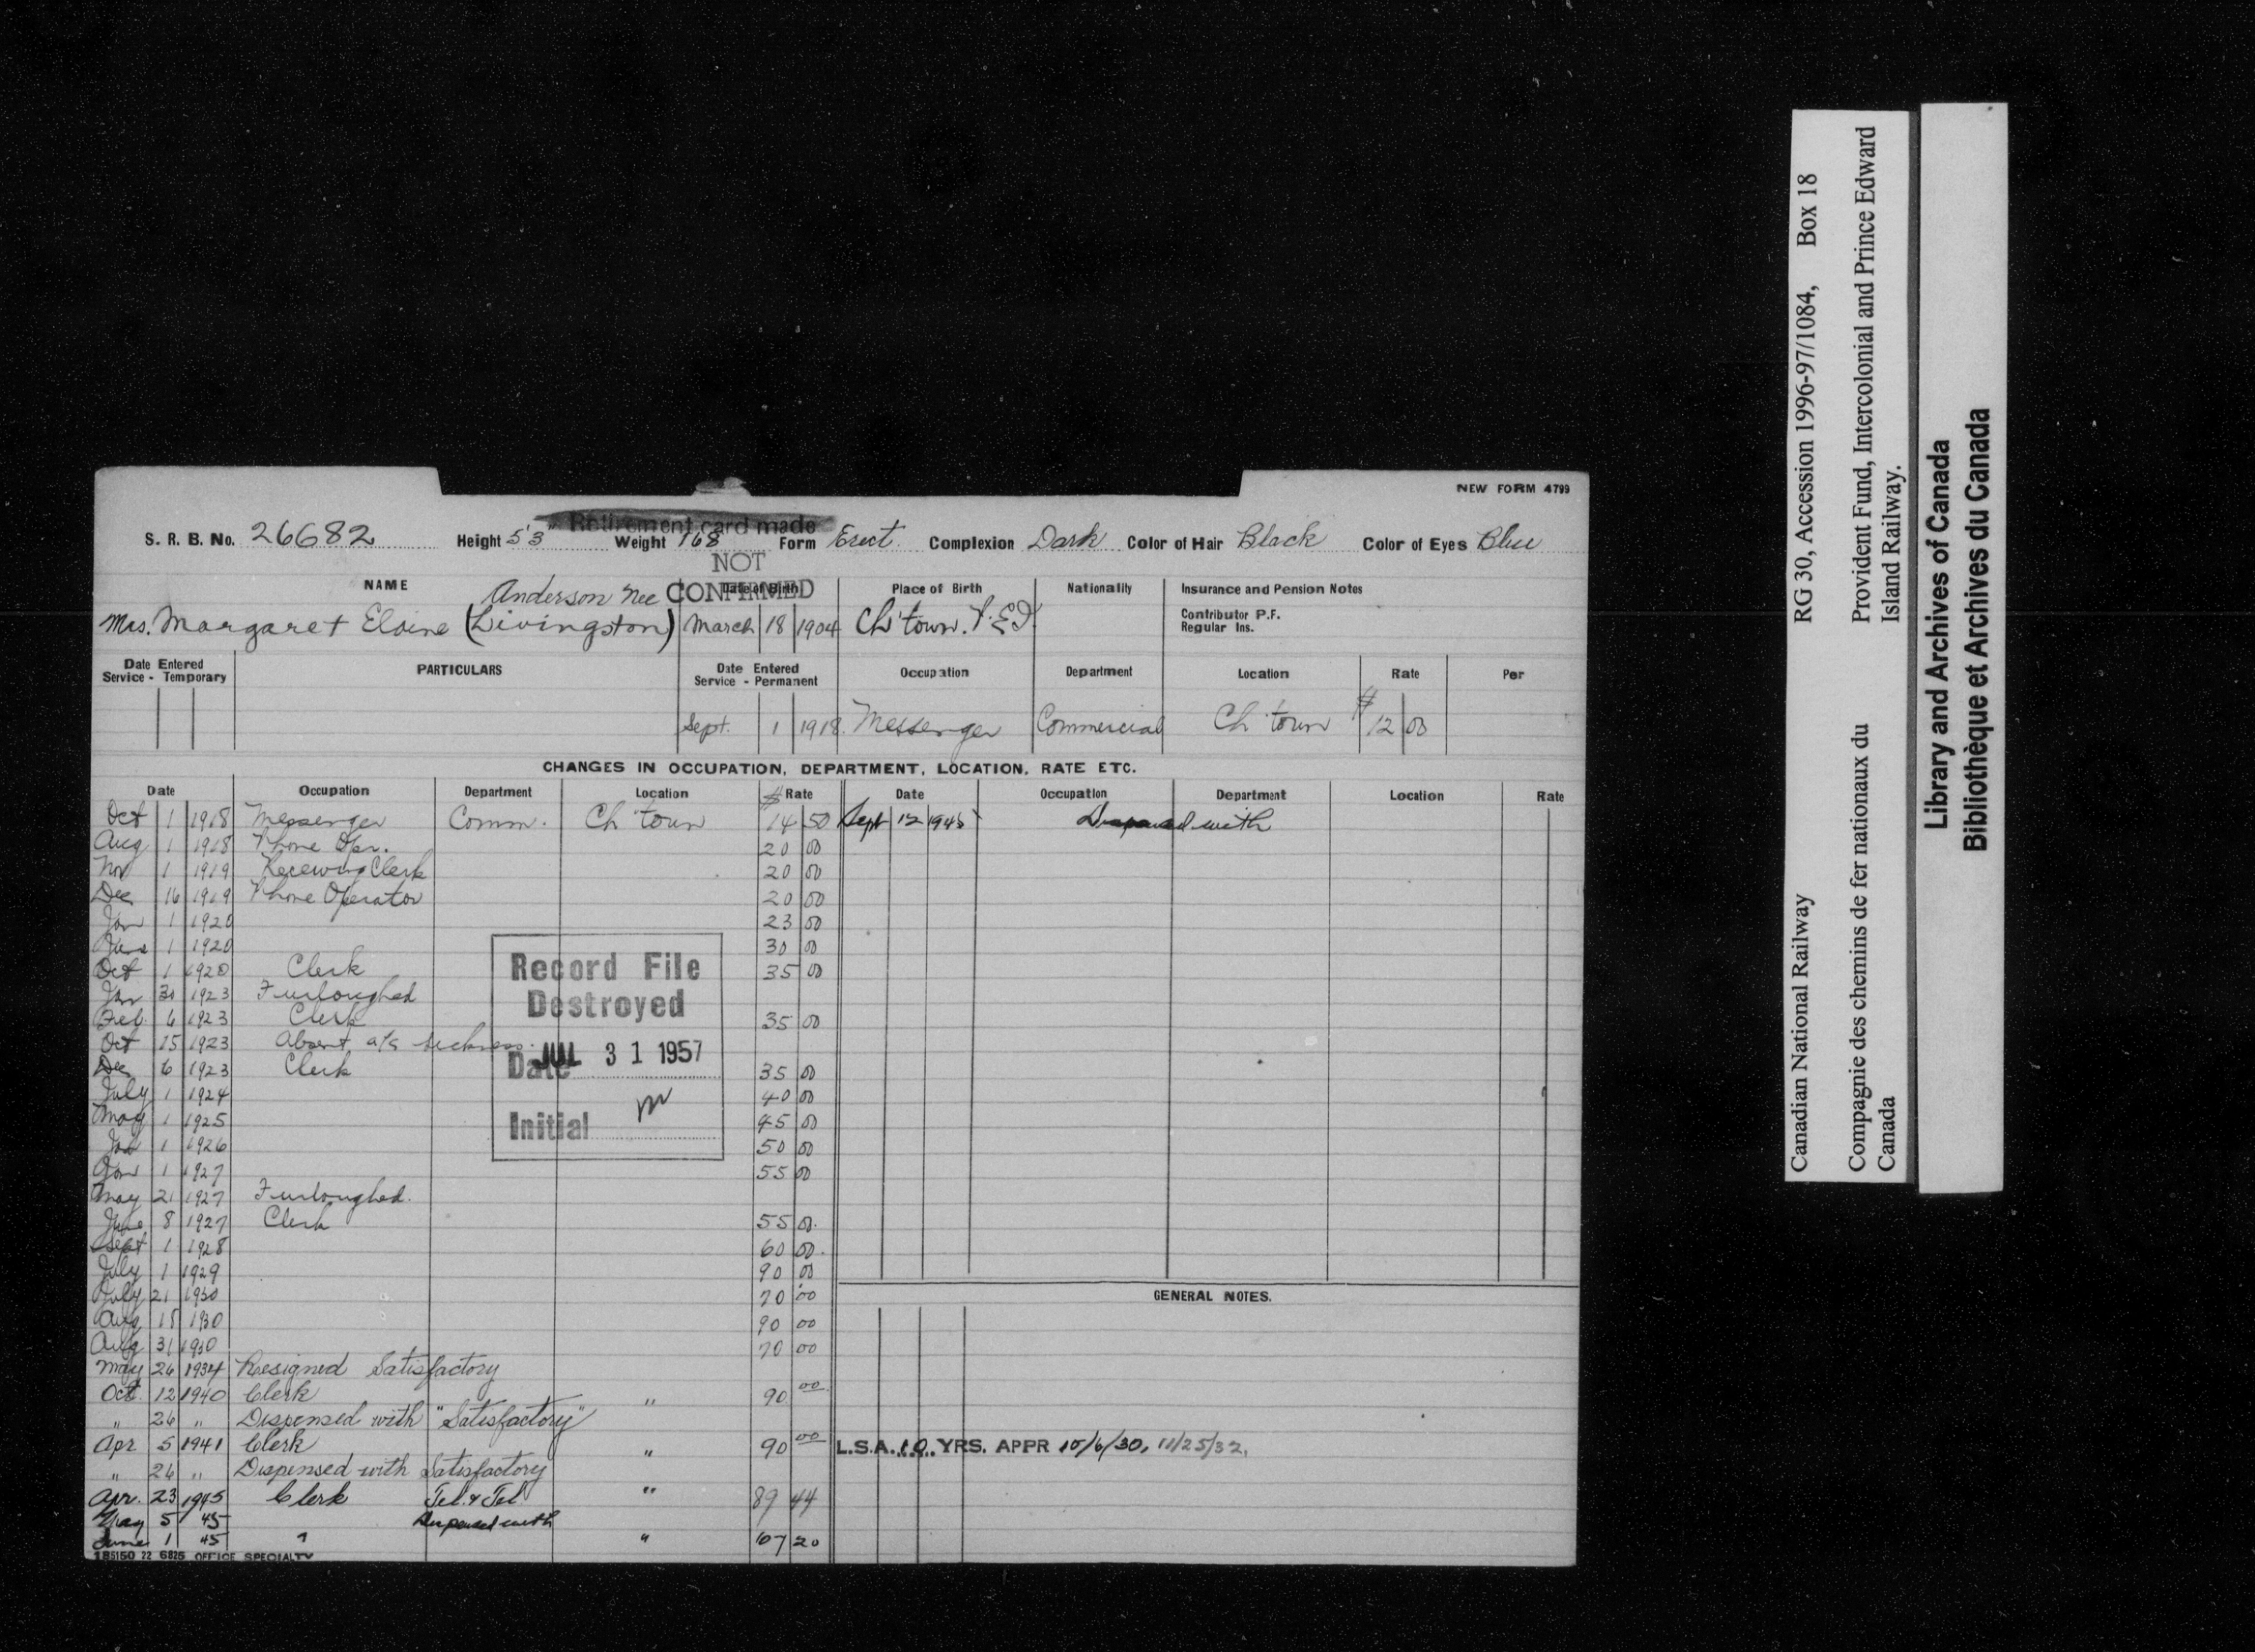 NEW FORM 4799
Retirement card made
S. R. B. No. 26682 Height 5'3" Weight 168 Form Erect Complexion Dark Color of Hair Black Color of Eyes Blue
NOT
CONFIRMED
NAME Date of Birth Place of Birth Nationality Insurance and Pension Notes
Anderson nee
Mrs. Margaret Eloine (Livingston) March 18 1904 Ch'town. P.E.I.
Contributor P.F.
Regular Ins.
Date Entered Service - Temporary PARTICULARS Date Entered Service - Permanent Occupation Department Location Rate Per
Sept. 1 1918. Messenger Commercial Ch'town $ 12 00
CHANGES IN OCCUPATION, DEPARTMENT, LOCATION, RATE ETC.
Date Occupation Department Location $ Rate Date Occupation Department Location Rate
Oct 1 1918 Messenger Comm. Ch'town 14 50 Sept 12 1945 Dispensed with
Aug 1 1918 Phone Opr. 20 00
Nov 1 1919 Receiving Clerk 20 00
Dec 16 1919 Phone Operator 20 00
Jan 1 1920 23 00
June 1 1920 30 00
Oct 1 1920 Clerk 35 00
Jan 31 1923 Furloughed
Feb. 6 1923 Clerk 35 00
Oct 15 1923 Absent a/c sickness.
Dec 6 1923 Clerk 35 00
July 1 1924 40 00
May 1 1925 45 00
Jan 1 1926 50 00
Jan 1 1927 55 00
May 21 1927 Furloughed.
June 8 1927 Clerk 55 00.
Sept 1 1928 60 00.
July 1 1929 90 00
July 21 1930 70 00
Aug 18 1930 90 00
Aug 31 1930 70 00
May 26 1934 Resigned Satisfactory
Oct. 12 1940 Clerk " 90 00
" 26 " Dispensed with "Satisfactory"
Apr 5 1941 Clerk " 90 00
" 26 " Dispensed with Satisfactory
Apr. 23 1945 Clerk Tel. & Tel " 89 44
May 5 45 Dispensed with
June 1 45 " " 107 20
185150 22 6825 OFFICE SPECIALTY
Record File
Destroyed
Date JUL 31 1957
Initial
GENERAL NOTES.
L.S.A. 10 YRS. APPR 10/6/30, 11/25/32.
Canadian National Railway RG 30, Accession 1996-97/1084, Box 18
Compagnie des chemins de fer nationaux du Provident Fund, Intercolonial and Prince Edward
Canada Island Railway.
Library and Archives of Canada
Bibliothèque et Archives du Canada